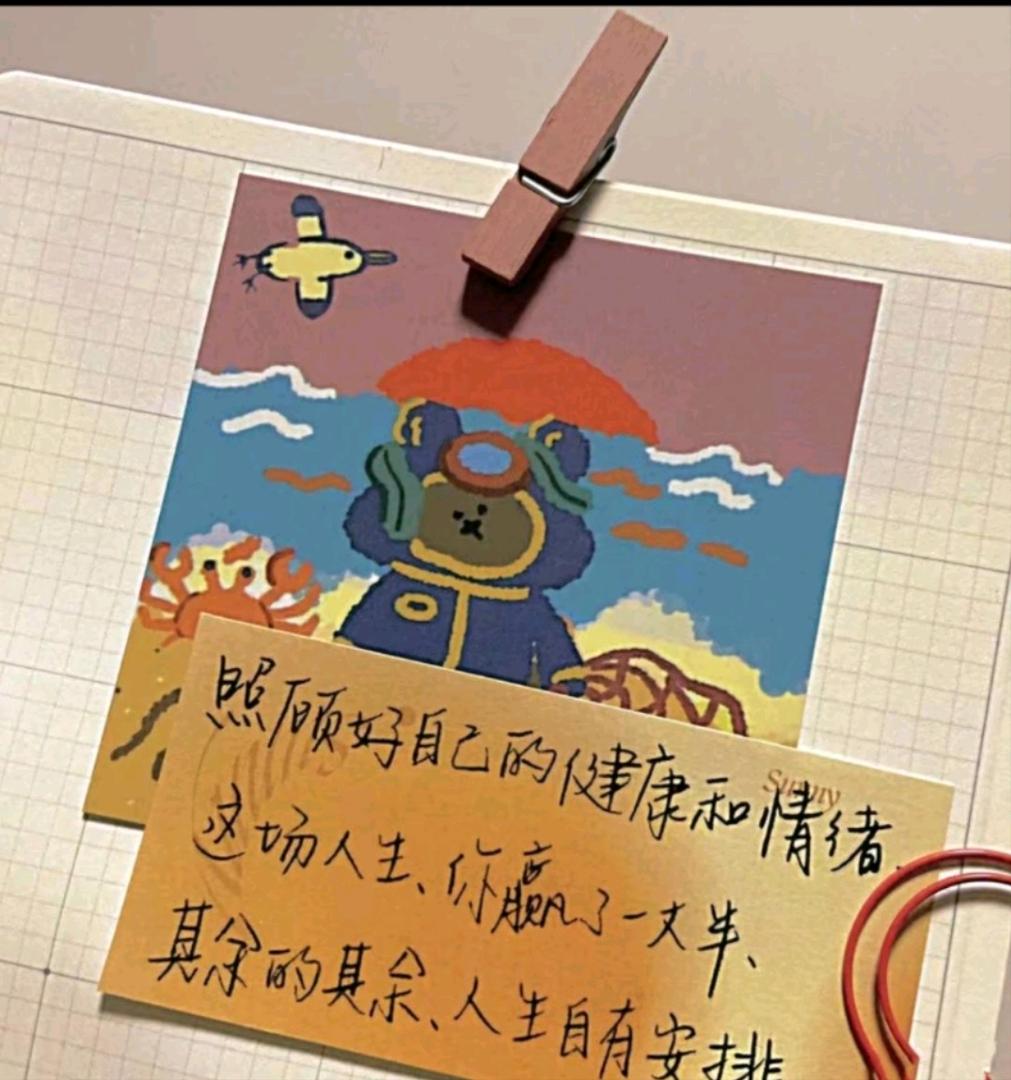 Sunny
照顾好自己的健康和情绪.
这场人生、你赢了一大半、
其余的其余、人生自有安排